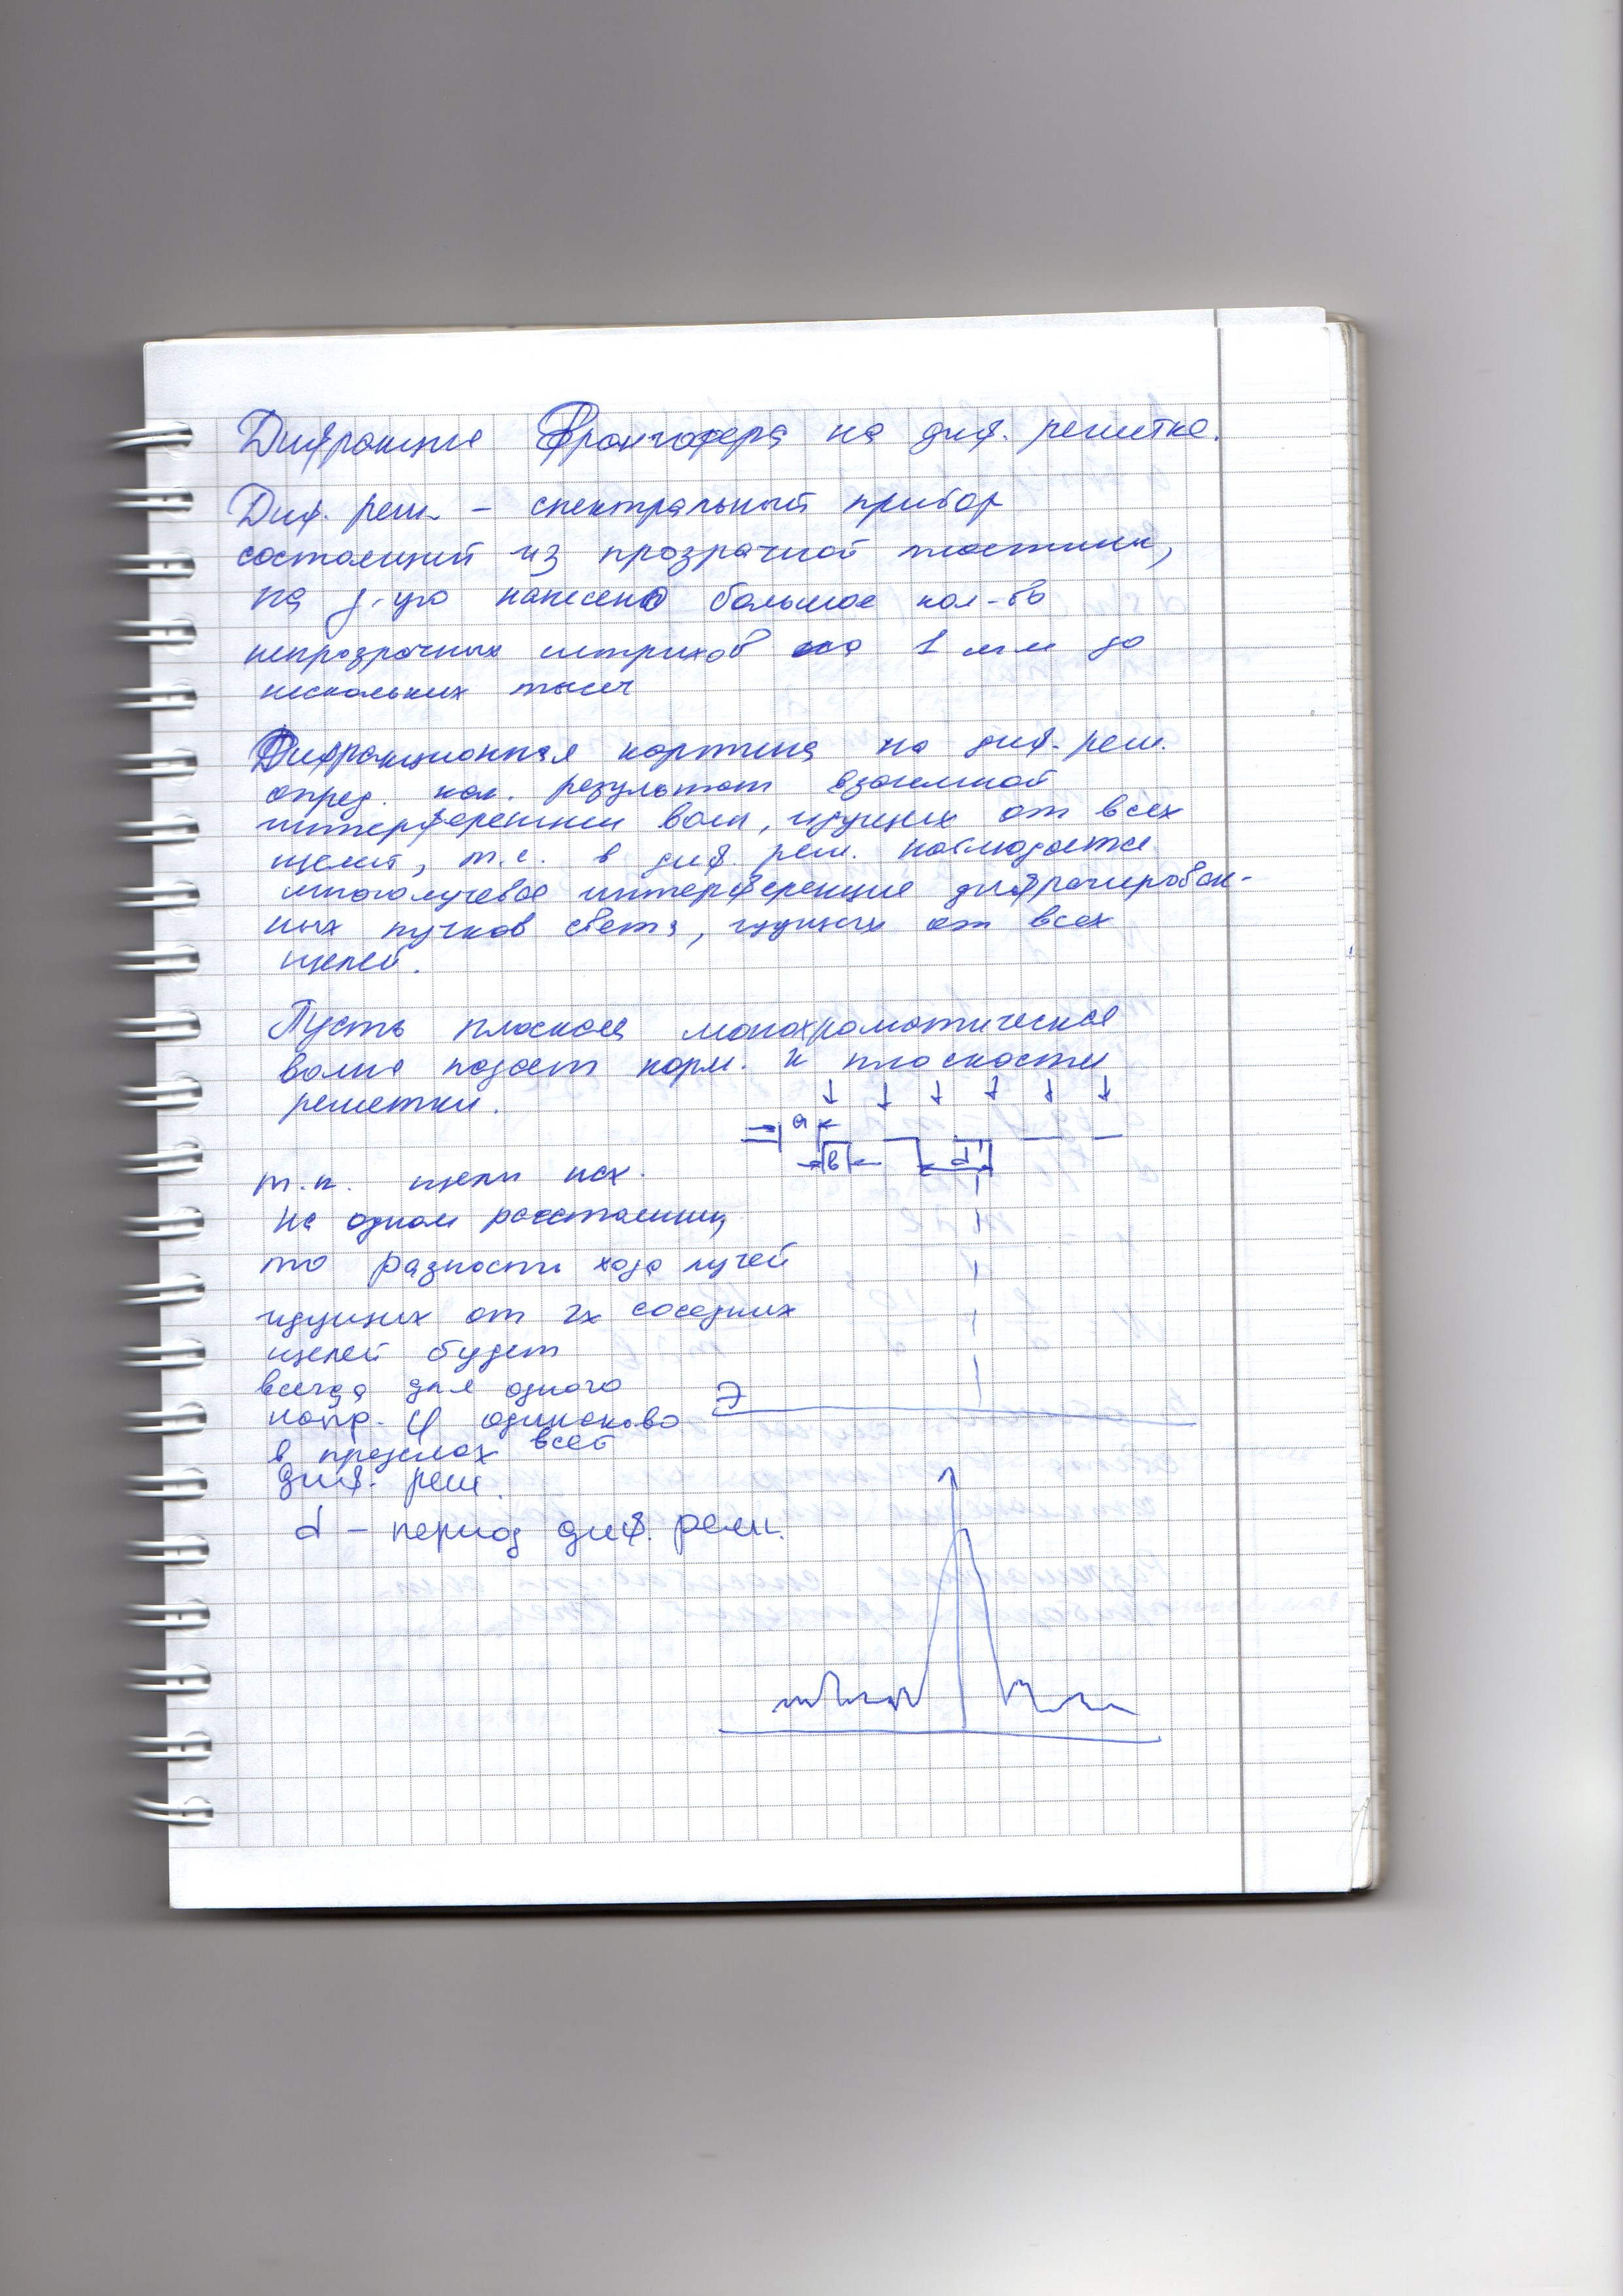 Дифракция Фраунгофера на диф. решетке.
Диф. реш. – спектральный прибор
состоящий из прозрачной пластины,
на нанесено большое кол-во
непрозрачных штрихов на 1 мм до
нескольких тысяч
Дифракционная картина на диф. реш.
опред. как. результат взаимной
интерференции волн, идущих от всех
щелей, т.е. в диф. реш. наблюдается
многолучевая интерференция дифрагирован-
ных пучков света, идущих от всех
щелей.
Пусть плоская монохроматическая
волна падает норм. к плоскости
решетки.
а
в
d
т.к. щели нах.
на одном расстоянии,
то разности хода лучей
идущих от 2х соседних
щелей будет
всегда для одного
напр. φ одинаково
в пределах всей
диф. реш.
Э
d – период диф. реш.